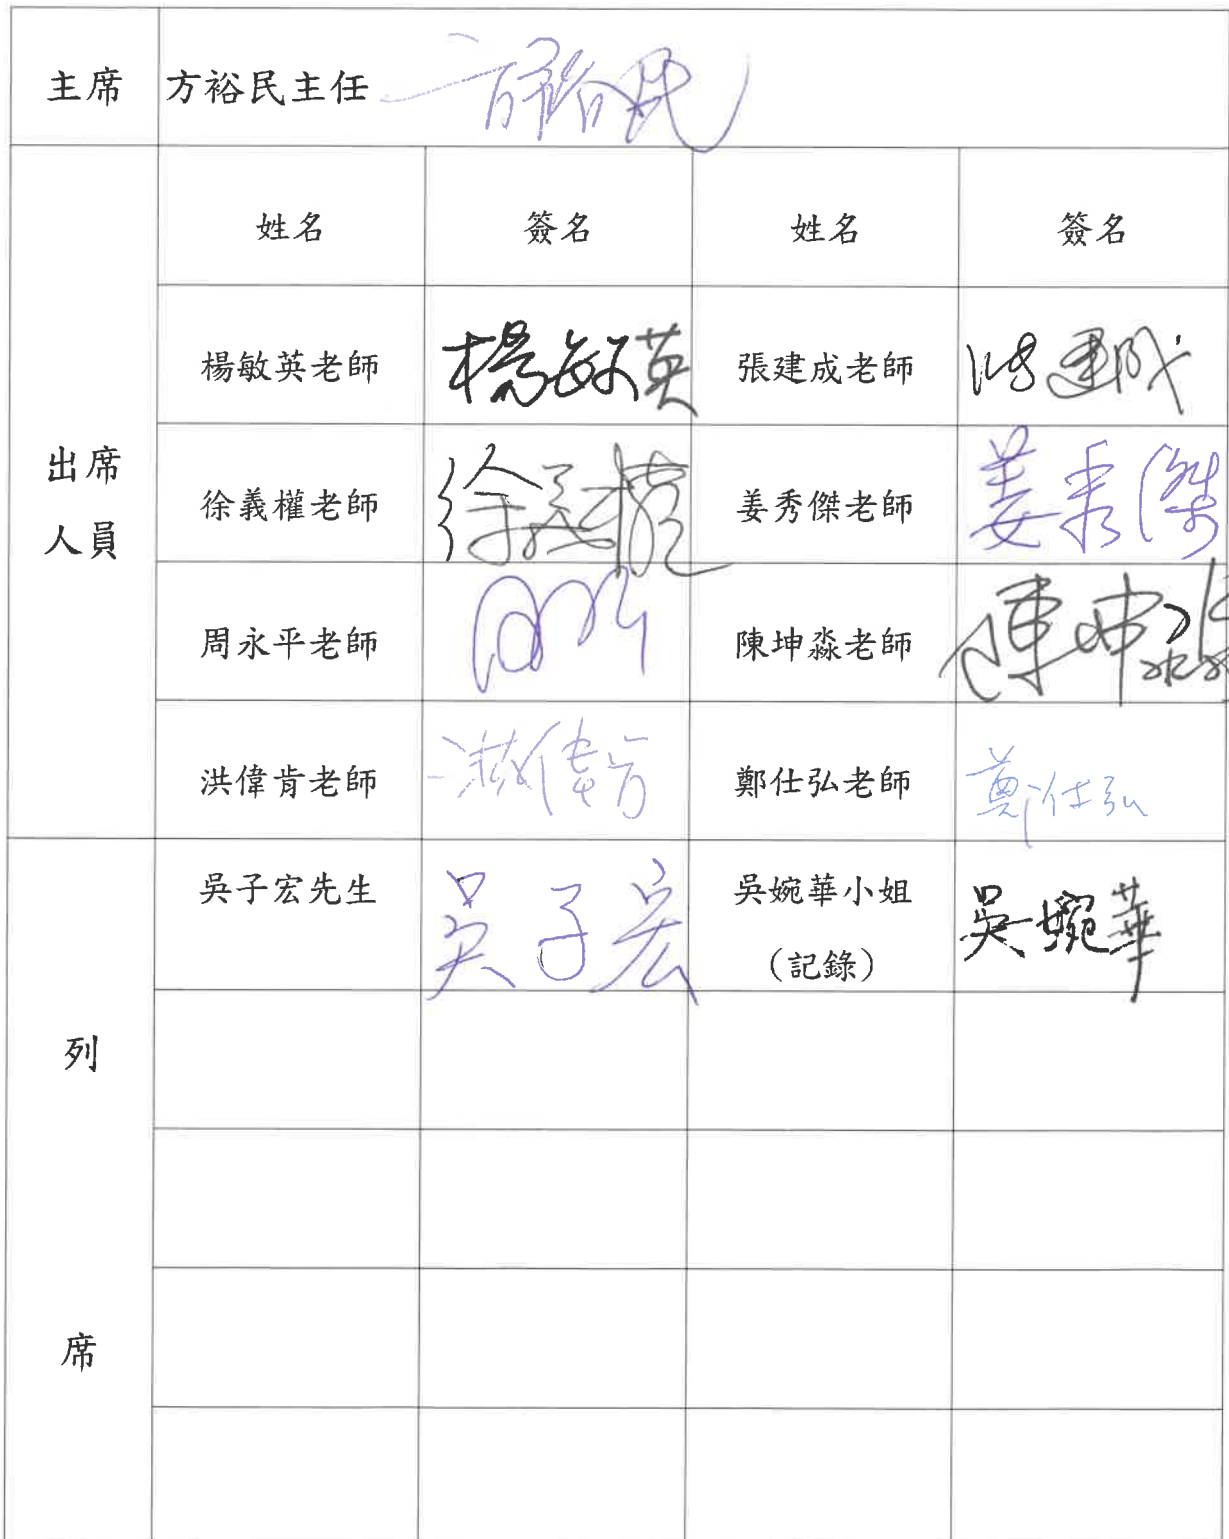 主席 方裕民主任 方裕民
姓名 簽名 姓名 簽名
楊敏英老師 楊敏英 張建成老師 張建成
出席
人員
徐義權老師 徐義權 姜秀傑老師 姜秀傑
周永平老師 陳坤淼老師 陳坤淼
洪偉肯老師 洪偉肯 鄭仕弘老師 鄭仕弘
列
席
吳子宏先生 吳子宏 吳婉華小姐 吳婉華
(記錄)